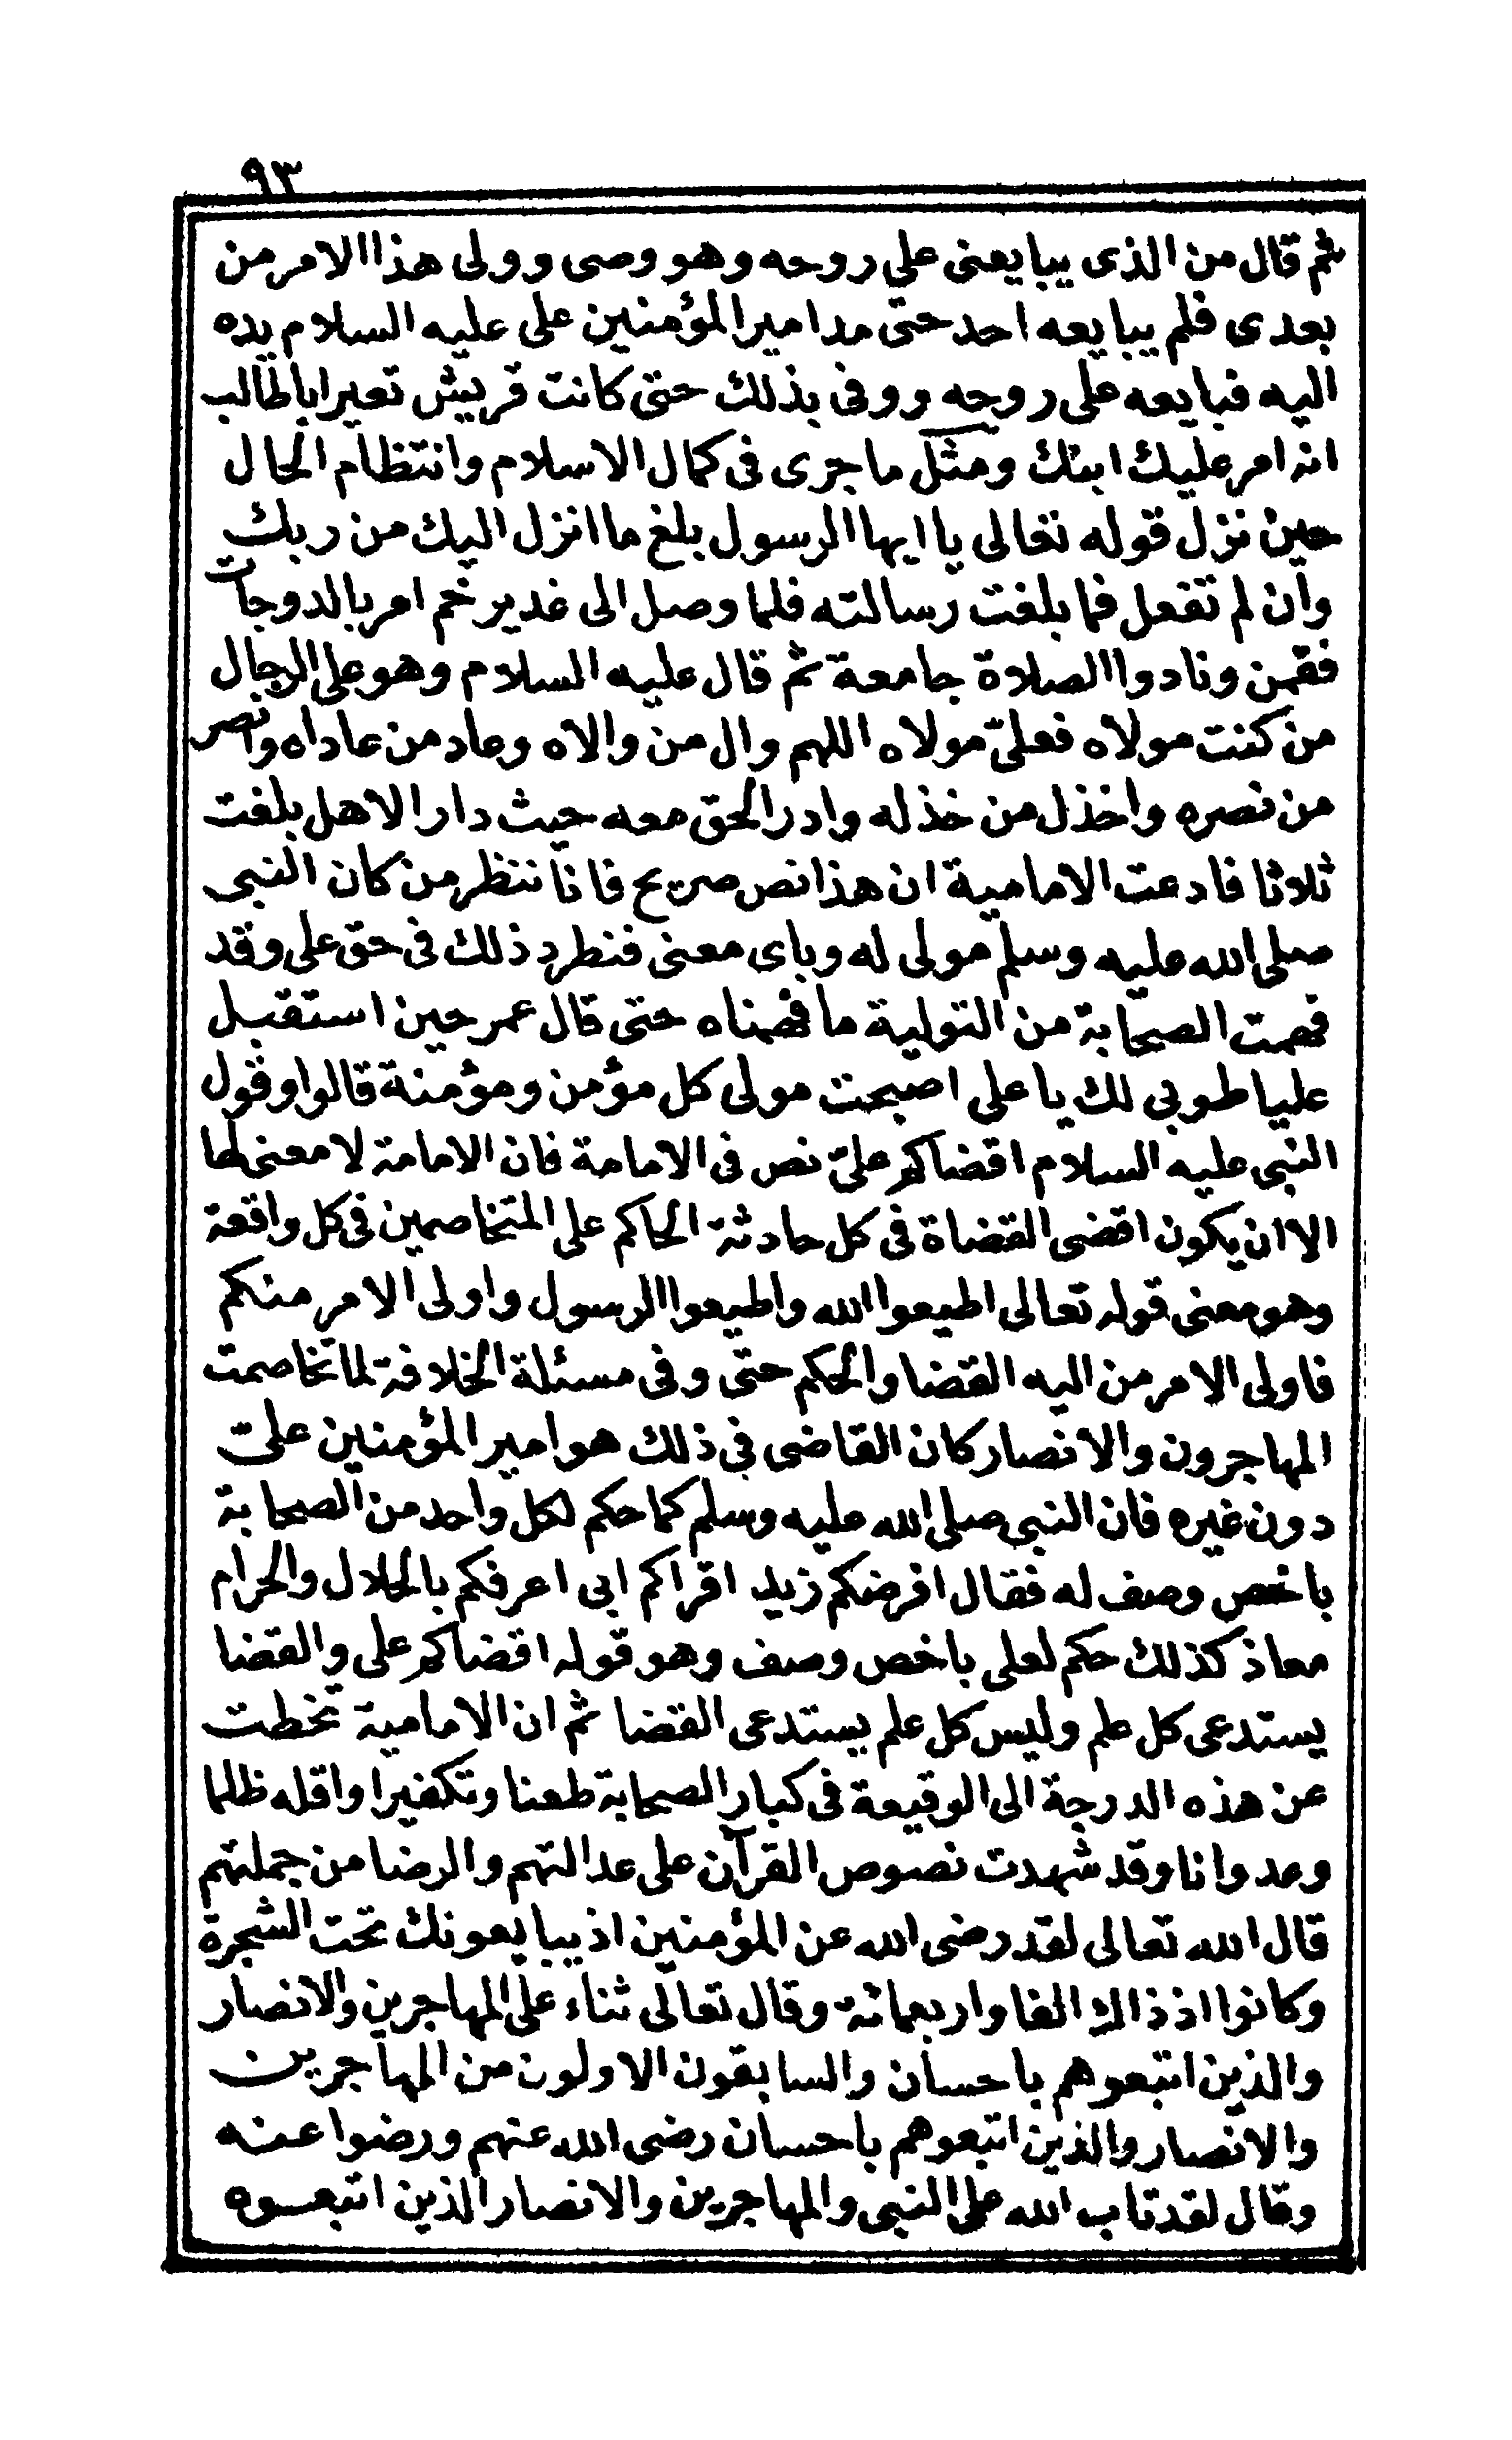 ٩٣
ثم قال من الذى يبايعنى على روحه وهو وصى وولى هذا الامر من
بعدى فلم يبايعه احد حتى مد امير المؤمنين على عليه السلام يده
اليه فبايعه على روحه ووفى بذلك حتى كانت قريش تعير اباطالب
انه امر عليك ابنك ومثل ما جرى فى كمال الاسلام وانتظام الحال
حين نزل قوله تعالى يا ايها الرسول بلغ ما انزل اليك من ربك
وان لم تفعل فما بلغت رسالته فلما وصل الى غدير خم امر بالدوجات
فقمن ونادوا الصلاة جامعة ثم قال عليه السلام وهو على الرجال
من كنت مولاه فعلىّ مولاه اللهم وال من والاه وعاد من عاداه وانصر
من نصره واخذل من خذله وادر الحق معه حيث دار الاهل بلغت
ثلاثا فادعت الامامية ان هذا نص صريح فانا ننظر من كان النبى
صلى الله عليه وسلم مولى له وباى معنى فنطرد ذلك فى حق على وقد
فهمت الصحابة من التولية ما فهمناه حتى قال عمر حين استقبل
عليا طوبى لك يا على اصبحت مولى كل مؤمن ومؤمنة قالوا وقول
النبى عليه السلام اقضاكم علىّ نص فى الامامة فان الامامة لا معنى لها
الا ان يكون اقضى القضاة فى كل حادثة الحاكم على المتخاصمين فى كل واقعة
وهو معنى قوله تعالى اطيعوا الله واطيعوا الرسول واولى الامر منكم
فاولى الامر من اليه القضا والحكم حتى وفى مسئلة الخلافة لما تخاصمت
المهاجرون والانصار كان القاضى فى ذلك هو امير المؤمنين على
دون غيره فان النبى صلى الله عليه وسلم كما حكم لكل واحد من الصحابة
باخص وصف له فقال افرضكم زيد اقراكم ابى اعرفكم بالحلال والحرام
معاذ كذلك حكم لعلى باخص وصف وهو قوله اقضاكم على والقضا
يستدعى كل علم وليس كل علم يستدعى القضا ثم ان الامامية تخطت
عن هذه الدرجة الى الوقيعة فى كبار الصحابة طعنا وتكفيرا واقله ظلما
وعدوانا وقد شهدت نصوص القرآن على عدالتهم والرضا من جملتهم
قال الله تعالى لقد رضى الله عن المؤمنين اذ يبايعونك تحت الشجرة
وكانوا اذ ذاك الفا واربعمائة وقال تعالى ثناء على المهاجرين والانصار
والذين اتبعوهم باحسان والسابقون الاولون من المهاجرين
والانصار والذين اتبعوهم باحسان رضى الله عنهم ورضوا عنه
وقال لقد تاب الله على النبى والمهاجرين والانصار الذين اتبعوه